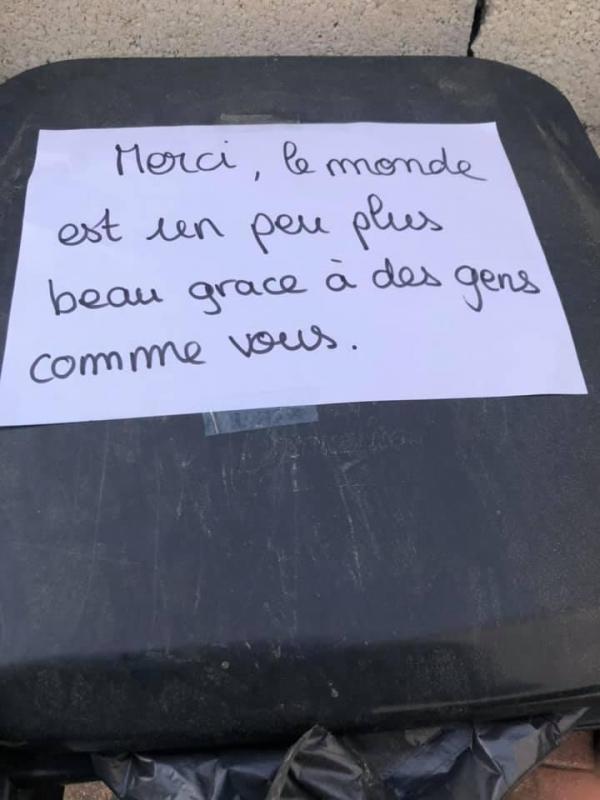 Merci, le monde
est un peu plus
beau grace à des gens
comme vous.